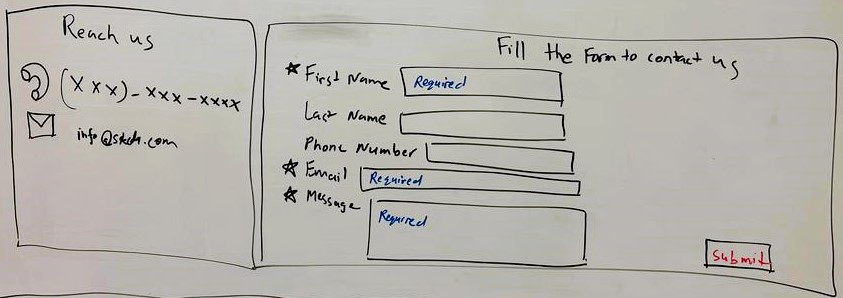 Reach us
(xxx)-xxx-xxxx
info@sketch.com
Fill the Form to contact us
* First Name Required
Last Name
Phone Number
* Email Required
* Message Required
Submit